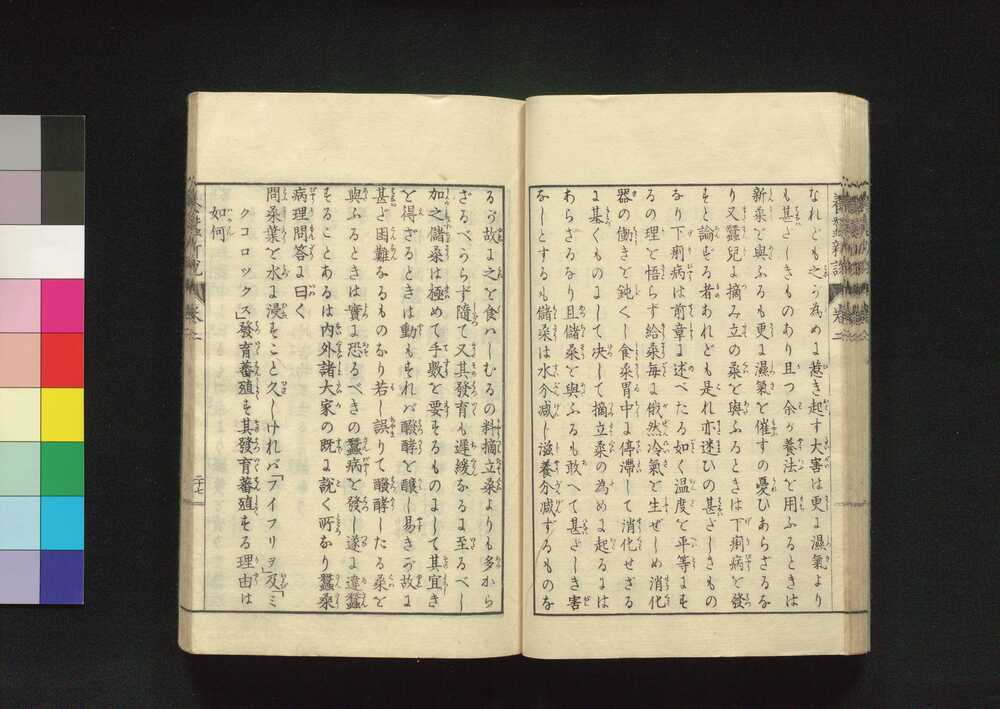 なれども之が為めに惹き起す大害は更に濕氣より
も甚だしきものあり且つ余が養法を用ふるときは
新桒を與ふるも更に濕氣を催すの憂ひあらざるな
り又蠶兒に摘み立の桑を與ふるときは下痢病を發
すと論ずる者あれども是れ亦迷ひの甚だしきもの
なり下痢病は前章に述べたる如く温度を平等にす
るの理を悟らず給桑毎に俄然冷氣を生ぜしめ消化
器の働きを鈍くし食桒胃中に停滯して消化せざる
に基くものにして决して摘立桑の為めに起るには
あらざるなり且儲桑を與ふるも敢へて甚だしき害
なしとするも儲桑は水分减し滋養分减ずるものな
るが故に之を食ハしむるの料摘立桑よりも多から
ざるべからず隨て又其發育も遲緩なるに至るべし
加之儲桒は極めて手數を要するものにして其宜き
を得ざるときは動もすれバ醱酵を釀し易きが故に
甚だ困難なるものなり若し誤りて醱酵したる桒を
與ふるときは實に恐るべきの蠶病を發し遂に違蠶
することあるは内外諸大家の既に説く所なり蠶桒
病理問答に曰く
問桒葉を水に浸すこと久しけれバ「フイフリヲ」及「ミ
クコロックス」發育蕃殖す其發育蕃殖する理由は
如何
養蠶新説
卷二
二十七